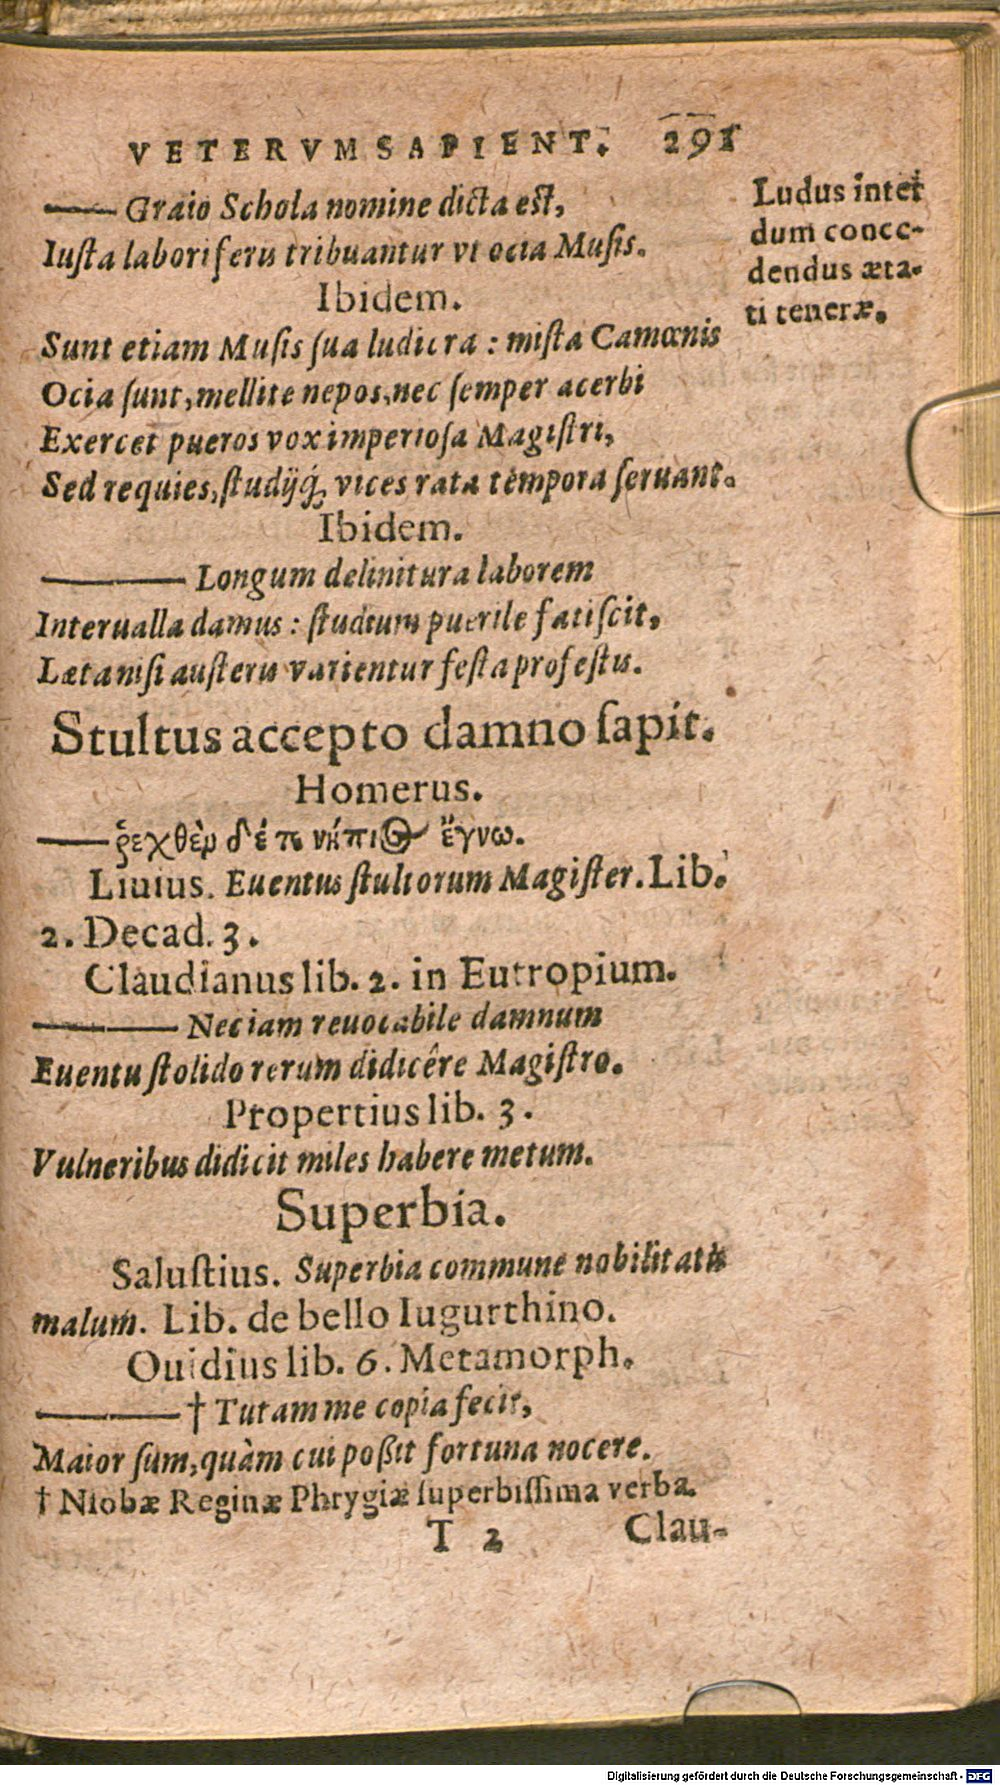 VETERVM SAPIENT. 291
—— Graio Schola nomine dicta est,
Iusta laboriferis tribuantur vt ocia Musis.
Ludus inter
dum conce-
dendus æta-
ti teneræ.
Ibidem.
Sunt etiam Musis sua ludicra : mista Camœnis
Ocia sunt, mellite nepos, nec semper acerbi
Exercet pueros vox imperiosa Magistri,
Sed requies, studijq́; vices rata tempora seruant.
Ibidem.
—— Longum delinitura laborem
Interualla damus : studium puerile fatiscit,
Læta nisi austeris varientur festa profestis.
Stultus accepto damno sapit.
Homerus.
—— ῥεχθὲν δέ τε νήπιος ἔγνω.
Liuius. Euentus stultorum Magister. Lib.
2. Decad. 3.
Claudianus lib. 2. in Eutropium.
—— Nec iam reuocabile damnum
Euentu stolido rerum didicêre Magistro.
Propertius lib. 3.
Vulneribus didicit miles habere metum.
Superbia.
Salustius. Superbia commune nobilitatis
malum. Lib. de bello Iugurthino.
Ouidius lib. 6. Metamorph.
—— † Tutam me copia fecit,
Maior sum, quàm cui poßit fortuna nocere.
† Niobæ Reginæ Phrygiæ superbissima verba.
T 2 Clau-
Digitalisierung gefördert durch die Deutsche Forschungsgemeinschaft - DFG